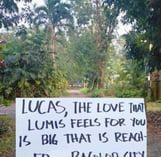 LUCAS, THE LOVE THAT
LUMIS FEELS FOR YOU
IS BIG THAT IS REACH-
ED BAGUIO CITY